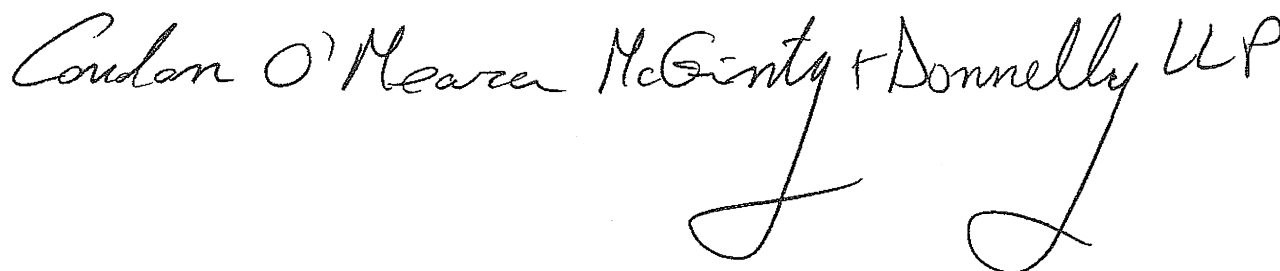 Condon O'Meara McGinty + Donnelly LLP